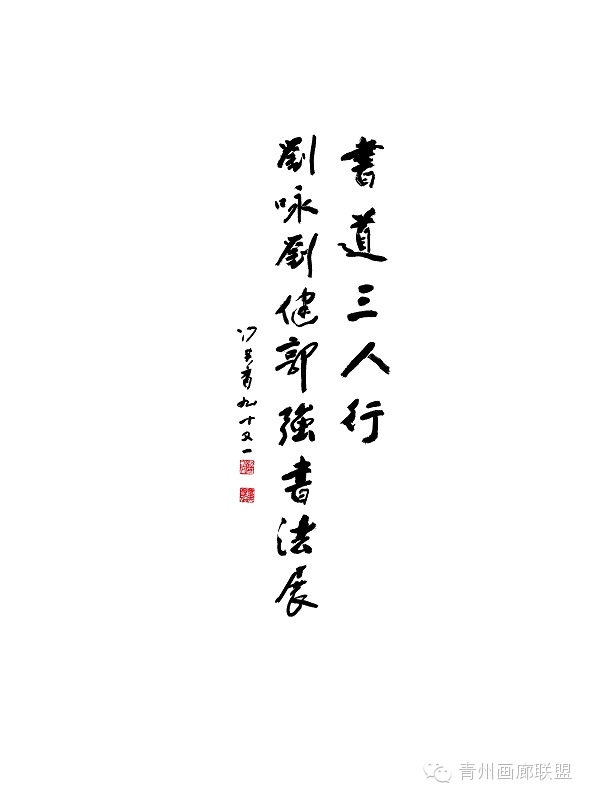 書道三人行
劉咏劉健郭強書法展
九十又一
青州画廊联盟